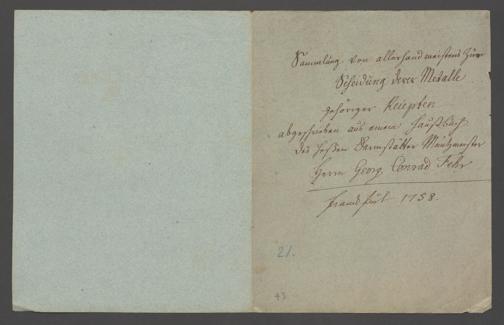 Sammlung von allerhand meistens Zur
Scheidung derer Metalle
gehöriger Recepten
abgeschrieben aus einem Haußbuch
des Heßen Darmstätter Müntzmeister
Herrn Georg Conrad Fehr
Franckfurt 1758.
21.
43